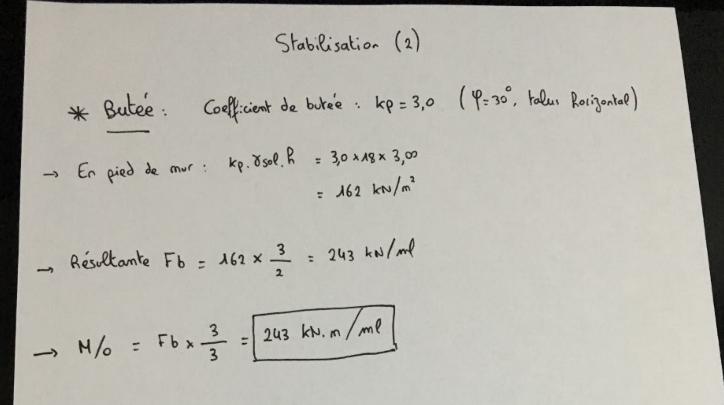 Stabilisation (2)
* Butée : Coefficient de butée : kp = 3,0 (φ=30°, talus horizontal)
→ En pied de mur : kp.γsol.h = 3,0 x 18 x 3,00
= 162 kN/m²
→ Résultante Fb = 162 x 3/2 = 243 kN/ml
→ M/o = Fb x 3/3 = 243 kN.m/ml